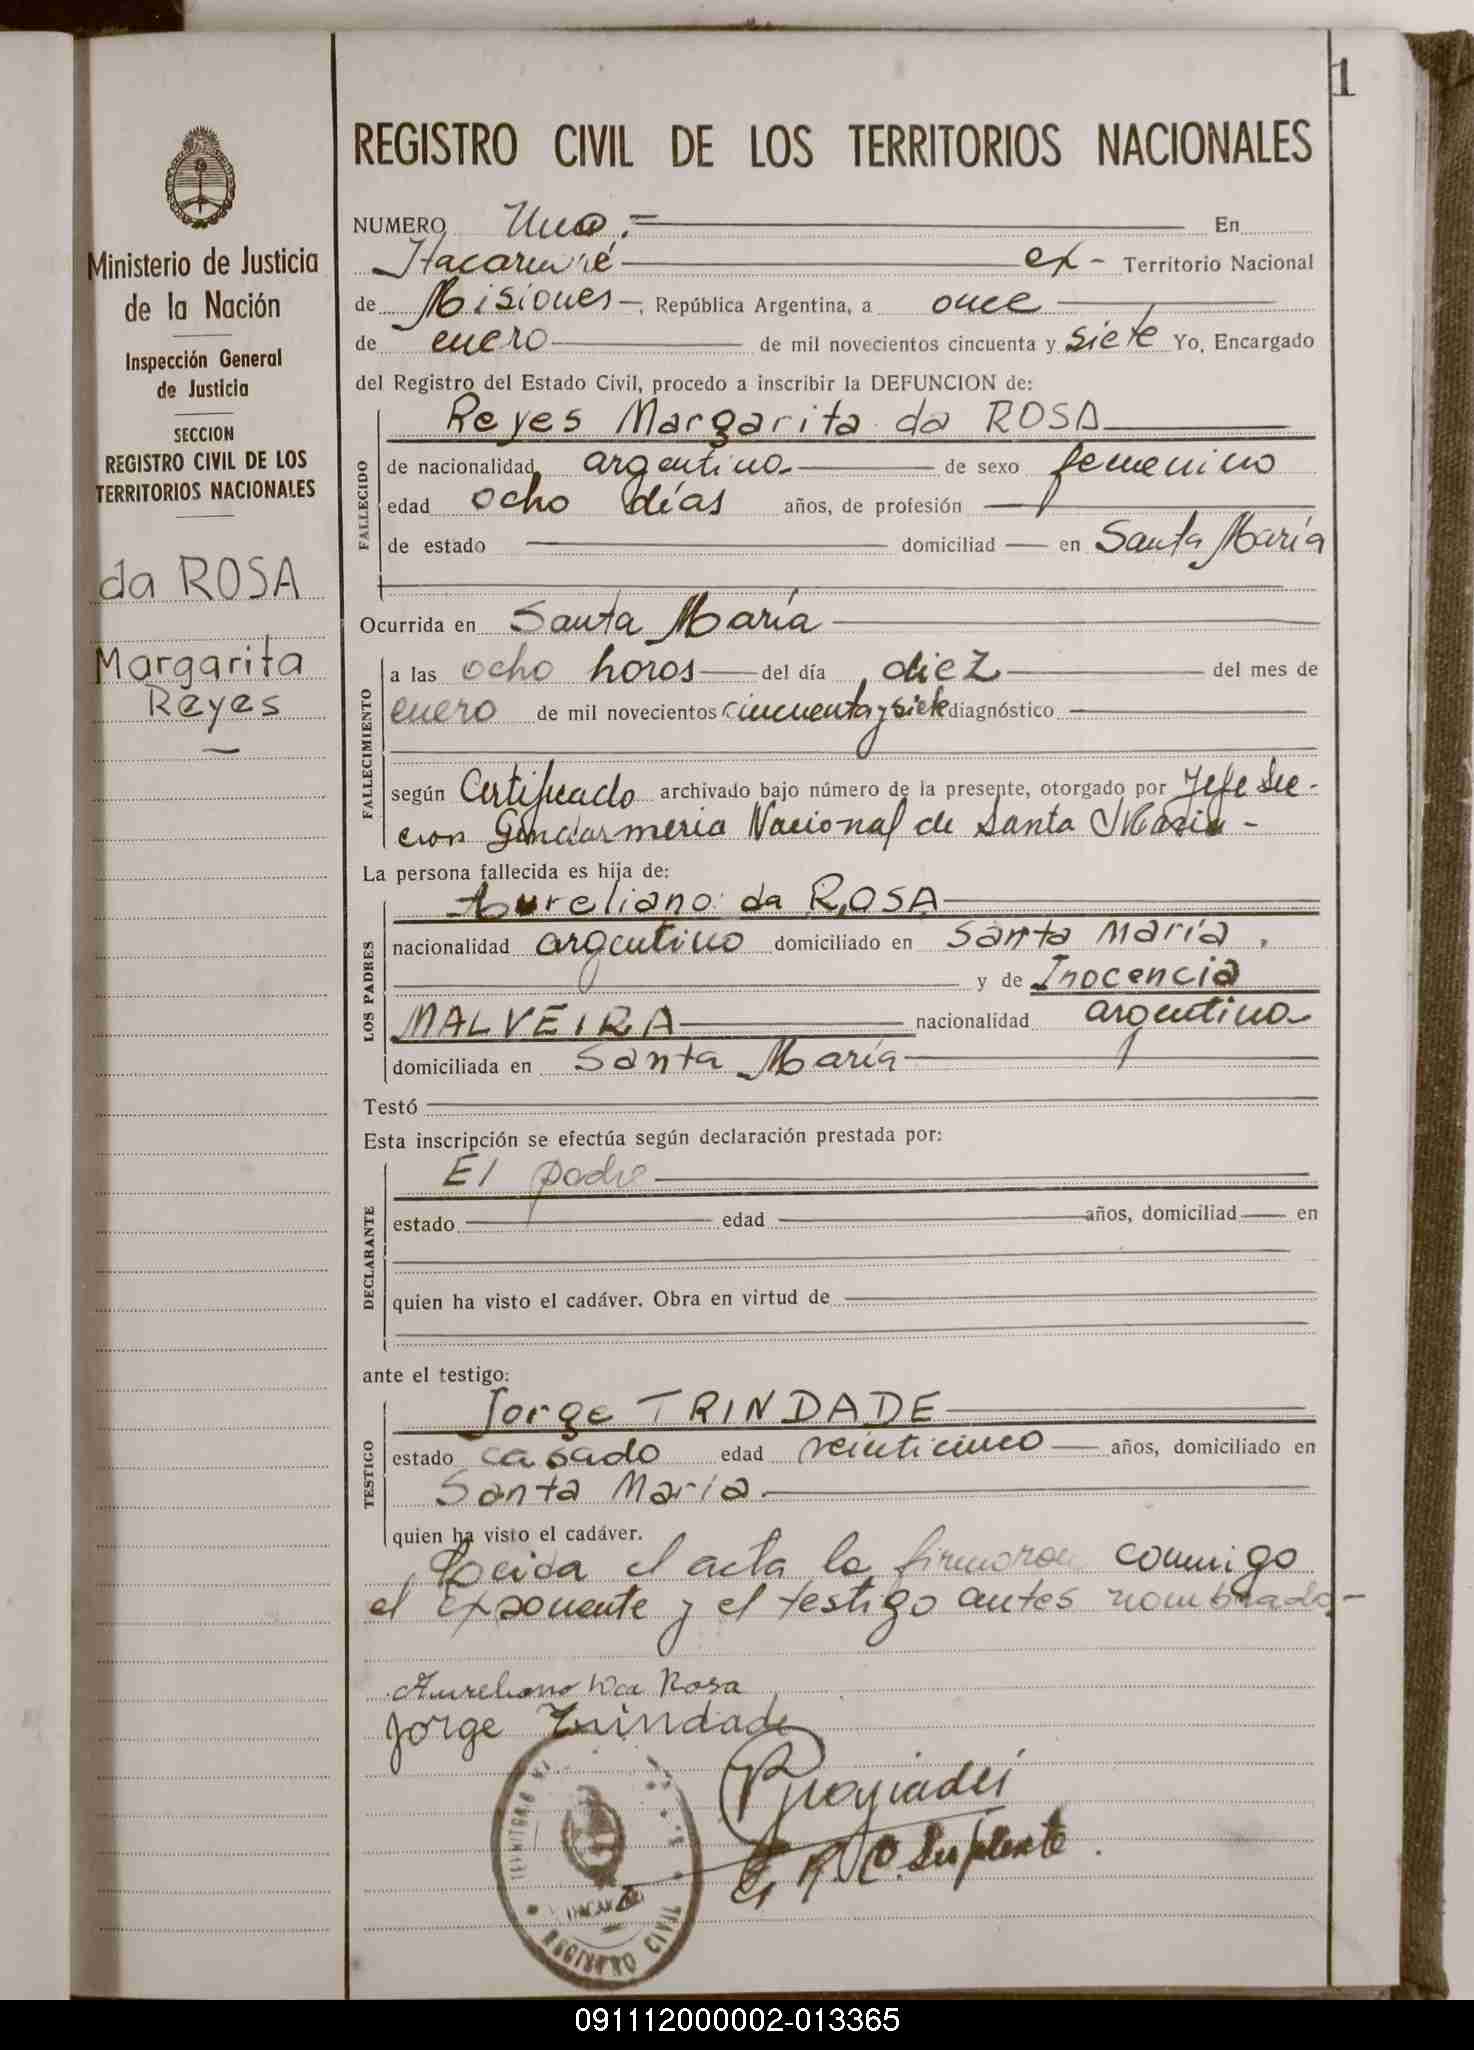 1
Ministerio de Justicia
de la Nación
Inspección General
de Justicia
SECCION
REGISTRO CIVIL DE LOS
TERRITORIOS NACIONALES
da ROSA
Margarita
Reyes
REGISTRO CIVIL DE LOS TERRITORIOS NACIONALES
NUMERO Uno.= En
Itacaruaré ex - Territorio Nacional
de Misiones -, República Argentina, a once
de enero de mil novecientos cincuenta y siete Yo, Encargado
del Registro del Estado Civil, procedo a inscribir la DEFUNCION de:
Reyes Margarita da ROSA
FALLECIDO
de nacionalidad argentina de sexo femenino
edad ocho días años, de profesión
de estado domiciliad en Santa María
Ocurrida en Santa María
FALLECIMIENTO
a las ocho horas del día diez del mes de
enero de mil novecientos cincuenta y siete diagnóstico
según Certificado archivado bajo número de la presente, otorgado por Jefe Sec-
cion Gendarmeria Nacional de Santa Maria -
La persona fallecida es hija de:
LOS PADRES
Aureliano da ROSA
nacionalidad argentino domiciliado en Santa María,
y de Inocencia
MALVEIRA nacionalidad argentina
domiciliada en Santa María
Testó
Esta inscripción se efectúa según declaración prestada por:
DECLARANTE
El padre
estado edad años, domiciliad en
quien ha visto el cadáver. Obra en virtud de
ante el testigo:
TESTIGO
Jorge TRINDADE
estado casado edad veinticinco años, domiciliado en
Santa Maria
quien ha visto el cadáver.
Leida el acta la firmaron conmigo
el exponente y el testigo antes nombrado.-
Aureliano Da Rosa
Jorge Trindade
E. R. C. Suplente.
REGISTRO CIVIL
091112000002-013365